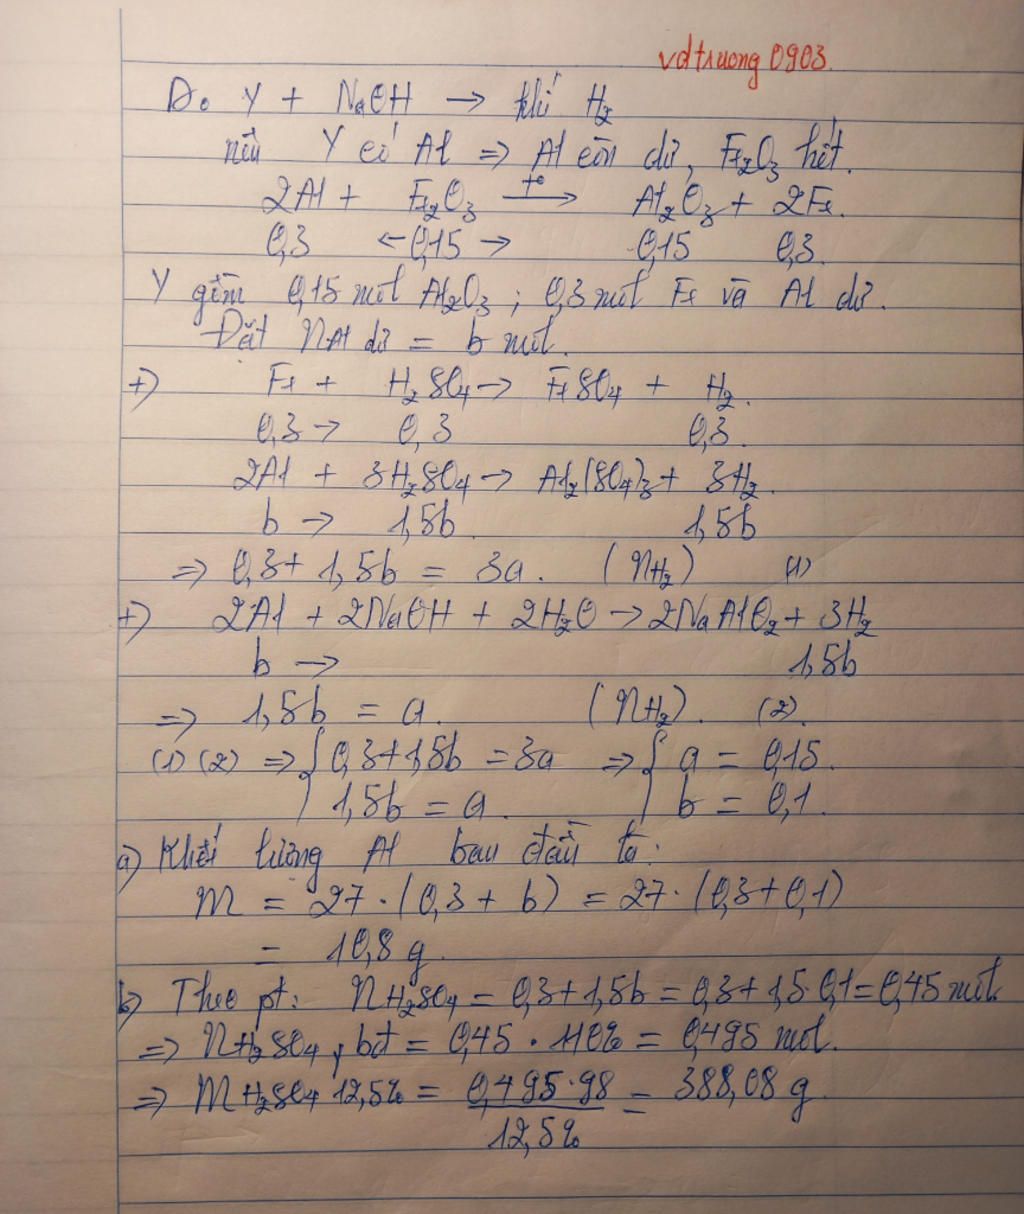 vdtruong 0903
Do Y + NaOH → khí H₂
nên Y có Al ⇒ Al còn dư, Fe₂O₃ hết.
2Al + Fe₂O₃ —t°→ Al₂O₃ + 2Fe.
0,3 ← 0,15 → 0,15 0,3.
Y gồm 0,15 mol Al₂O₃ ; 0,3 mol Fe và Al dư.
Đặt nAl dư = b mol.
+) Fe + H₂SO₄ → FeSO₄ + H₂.
0,3 → 0,3 0,3.
2Al + 3H₂SO₄ → Al₂(SO₄)₃ + 3H₂.
b → 1,5b 1,5b
⇒ 0,3 + 1,5b = 3a. (nH₂) (1)
+) 2Al + 2NaOH + 2H₂O → 2NaAlO₂ + 3H₂
b → 1,5b
⇒ 1,5b = a. (nH₂). (2).
(1) (2) ⇒ { 0,3 + 1,5b = 3a ⇒ { a = 0,15.
1,5b = a. b = 0,1.
a) Khối lượng Al ban đầu là:
m = 27 . (0,3 + b) = 27 . (0,3 + 0,1)
= 10,8 g.
b) Theo pt: nH₂SO₄ = 0,3 + 1,5b = 0,3 + 1,5 . 0,1 = 0,45 mol.
⇒ nH₂SO₄, bđ = 0,45 . 110% = 0,495 mol.
⇒ mH₂SO₄ 12,5% = 0,495 . 98 = 388,08 g.
12,5%